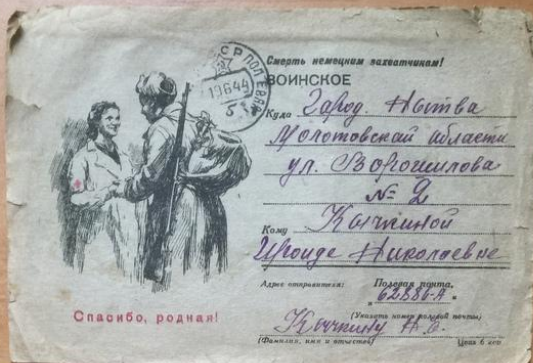 Смерть немецким захватчикам!
ВОИНСКОЕ
Куда Город. Нытва
Молотовской области
ул. Ворошилова
№ 2
Кому Кычкиной
Ираиде Николаевне
Адрес отправителя: Полевая почта,
62886-А
(Указать номер полевой почты)
Кычкину А.
(Фамилия, имя и отчество) Цена 6 коп
Спасибо, родная!
ПОЛЕВАЯ
19 6 44